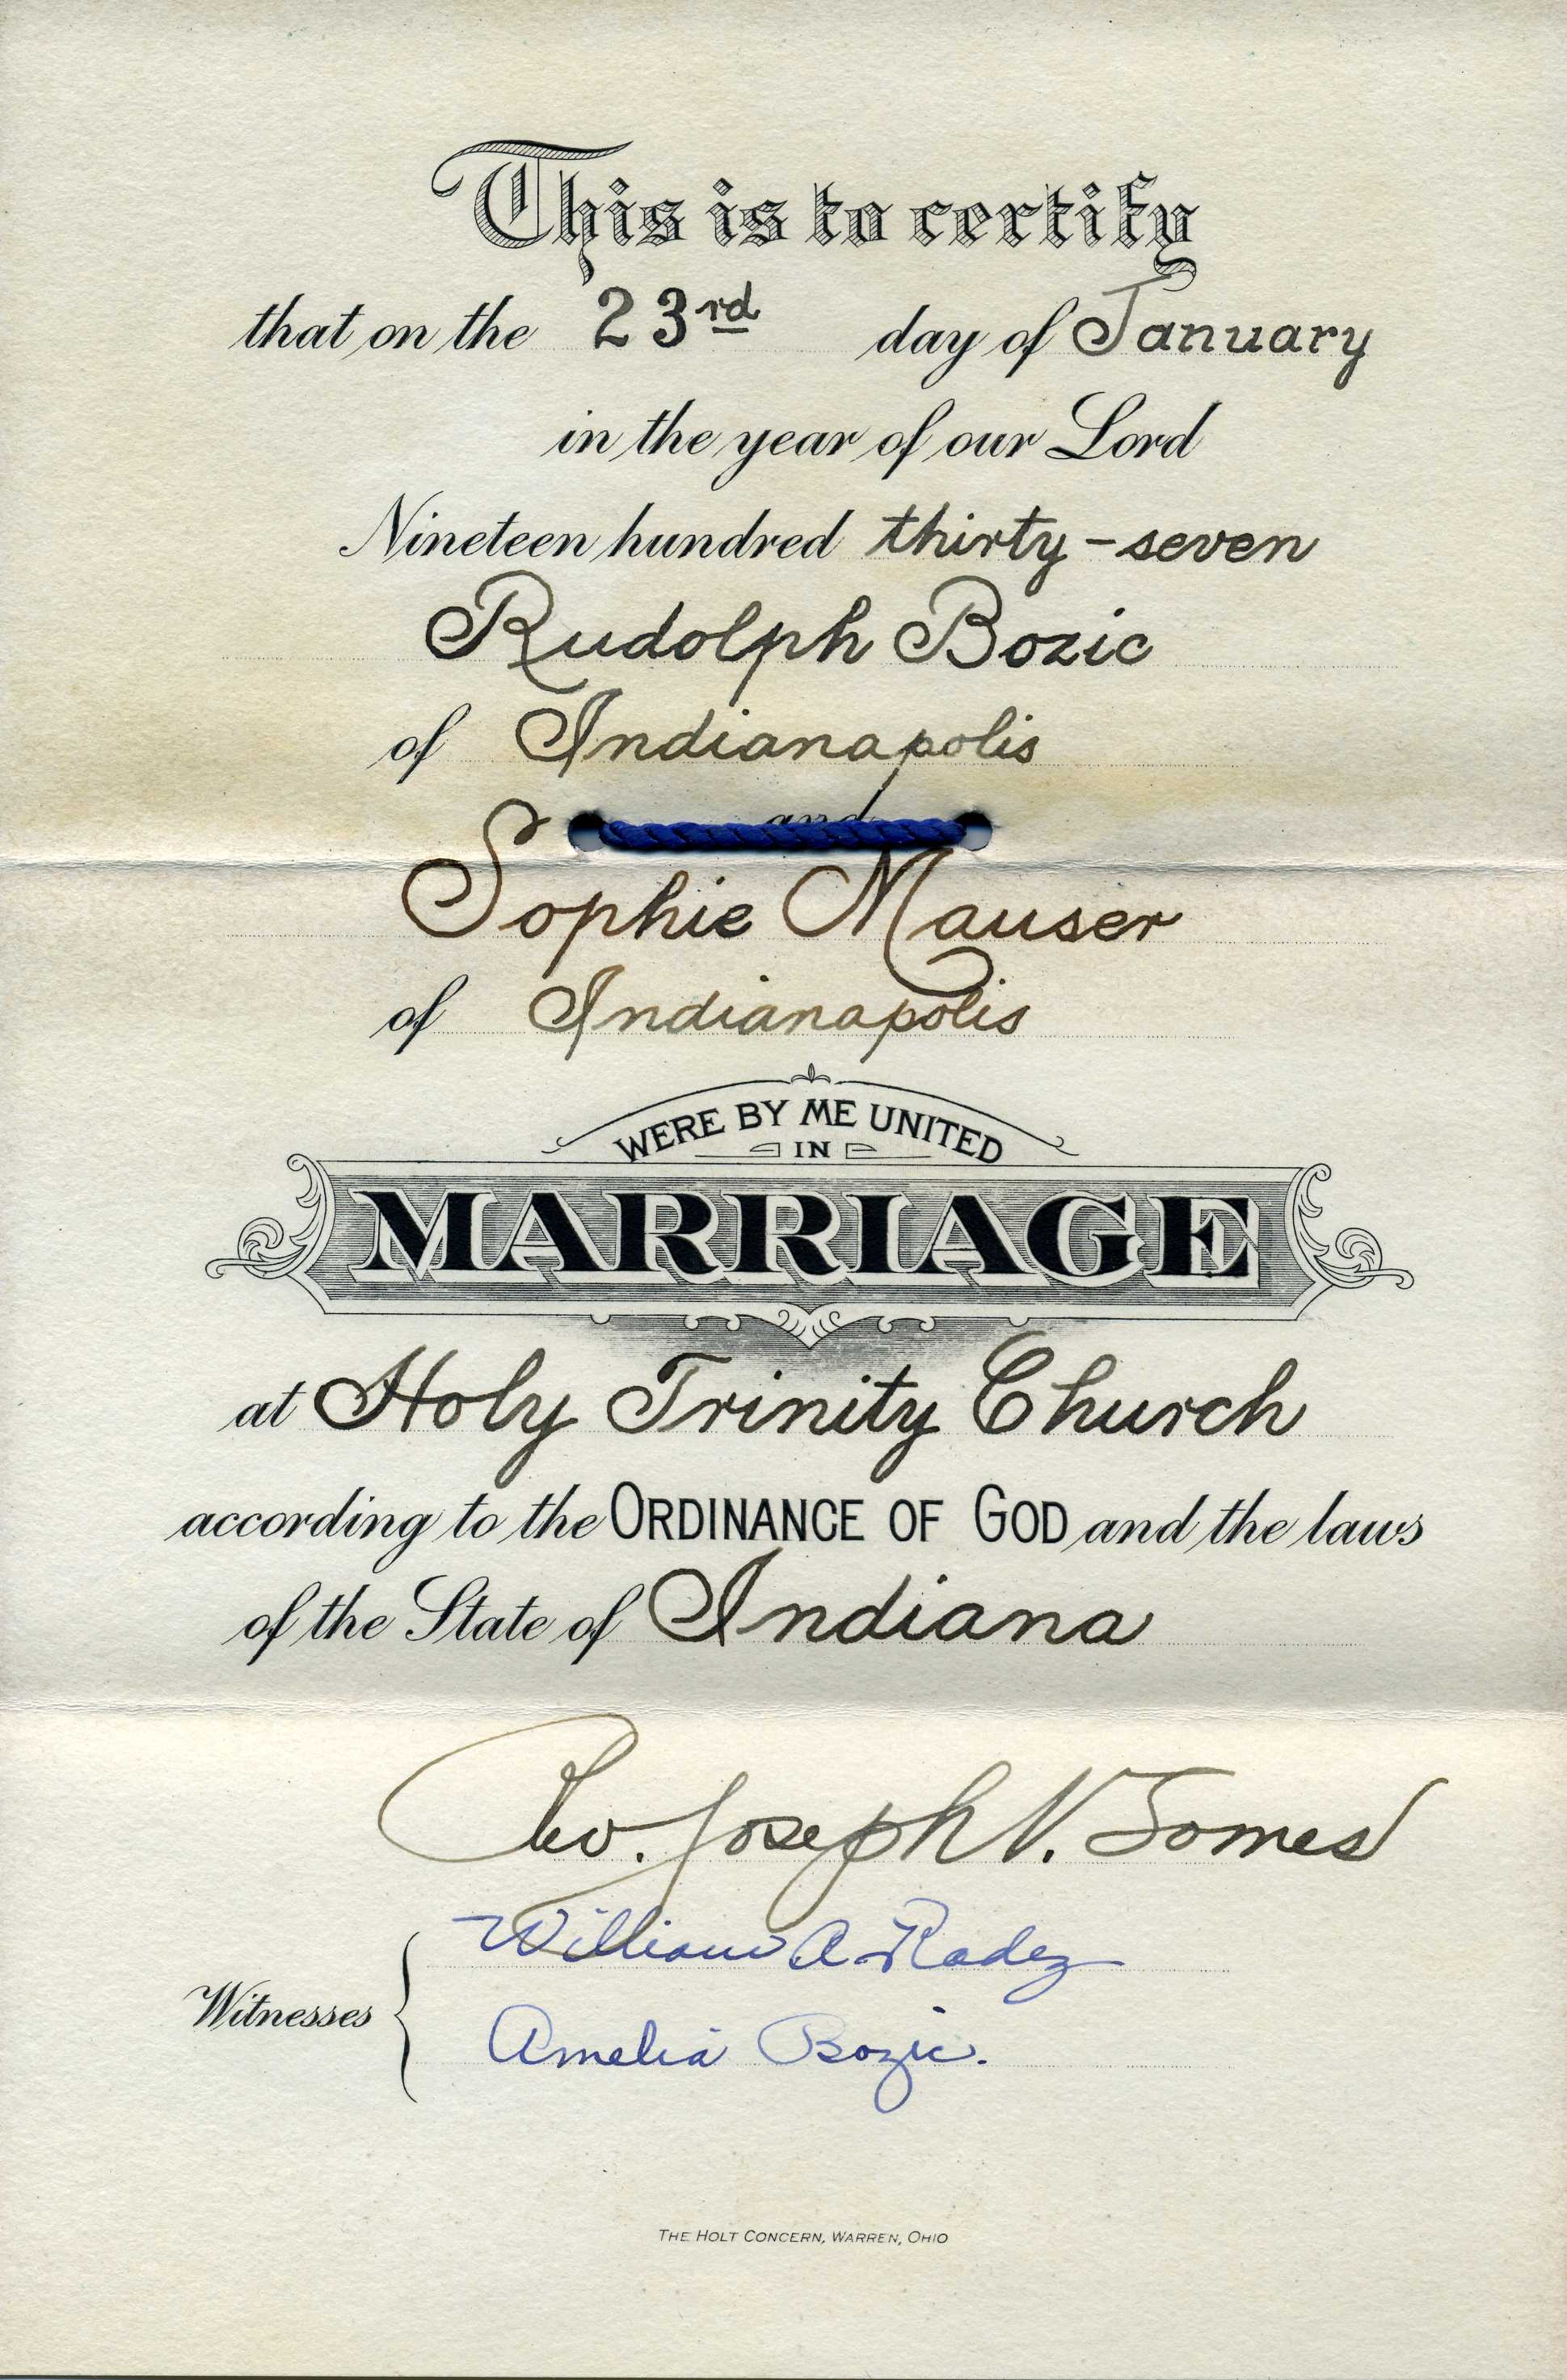 This is to certify
that on the 23rd day of January
in the year of our Lord
Nineteen hundred thirty-seven
Rudolph Bozic
of Indianapolis
and
Sophie Mauser
of Indianapolis
WERE BY ME UNITED
IN
MARRIAGE
at Holy Trinity Church
according to the ORDINANCE OF GOD and the laws
of the State of Indiana
Rev. Joseph V. Somes
William A Radez
Witnesses
Amelia Bozic.
THE HOLT CONCERN, WARREN, OHIO